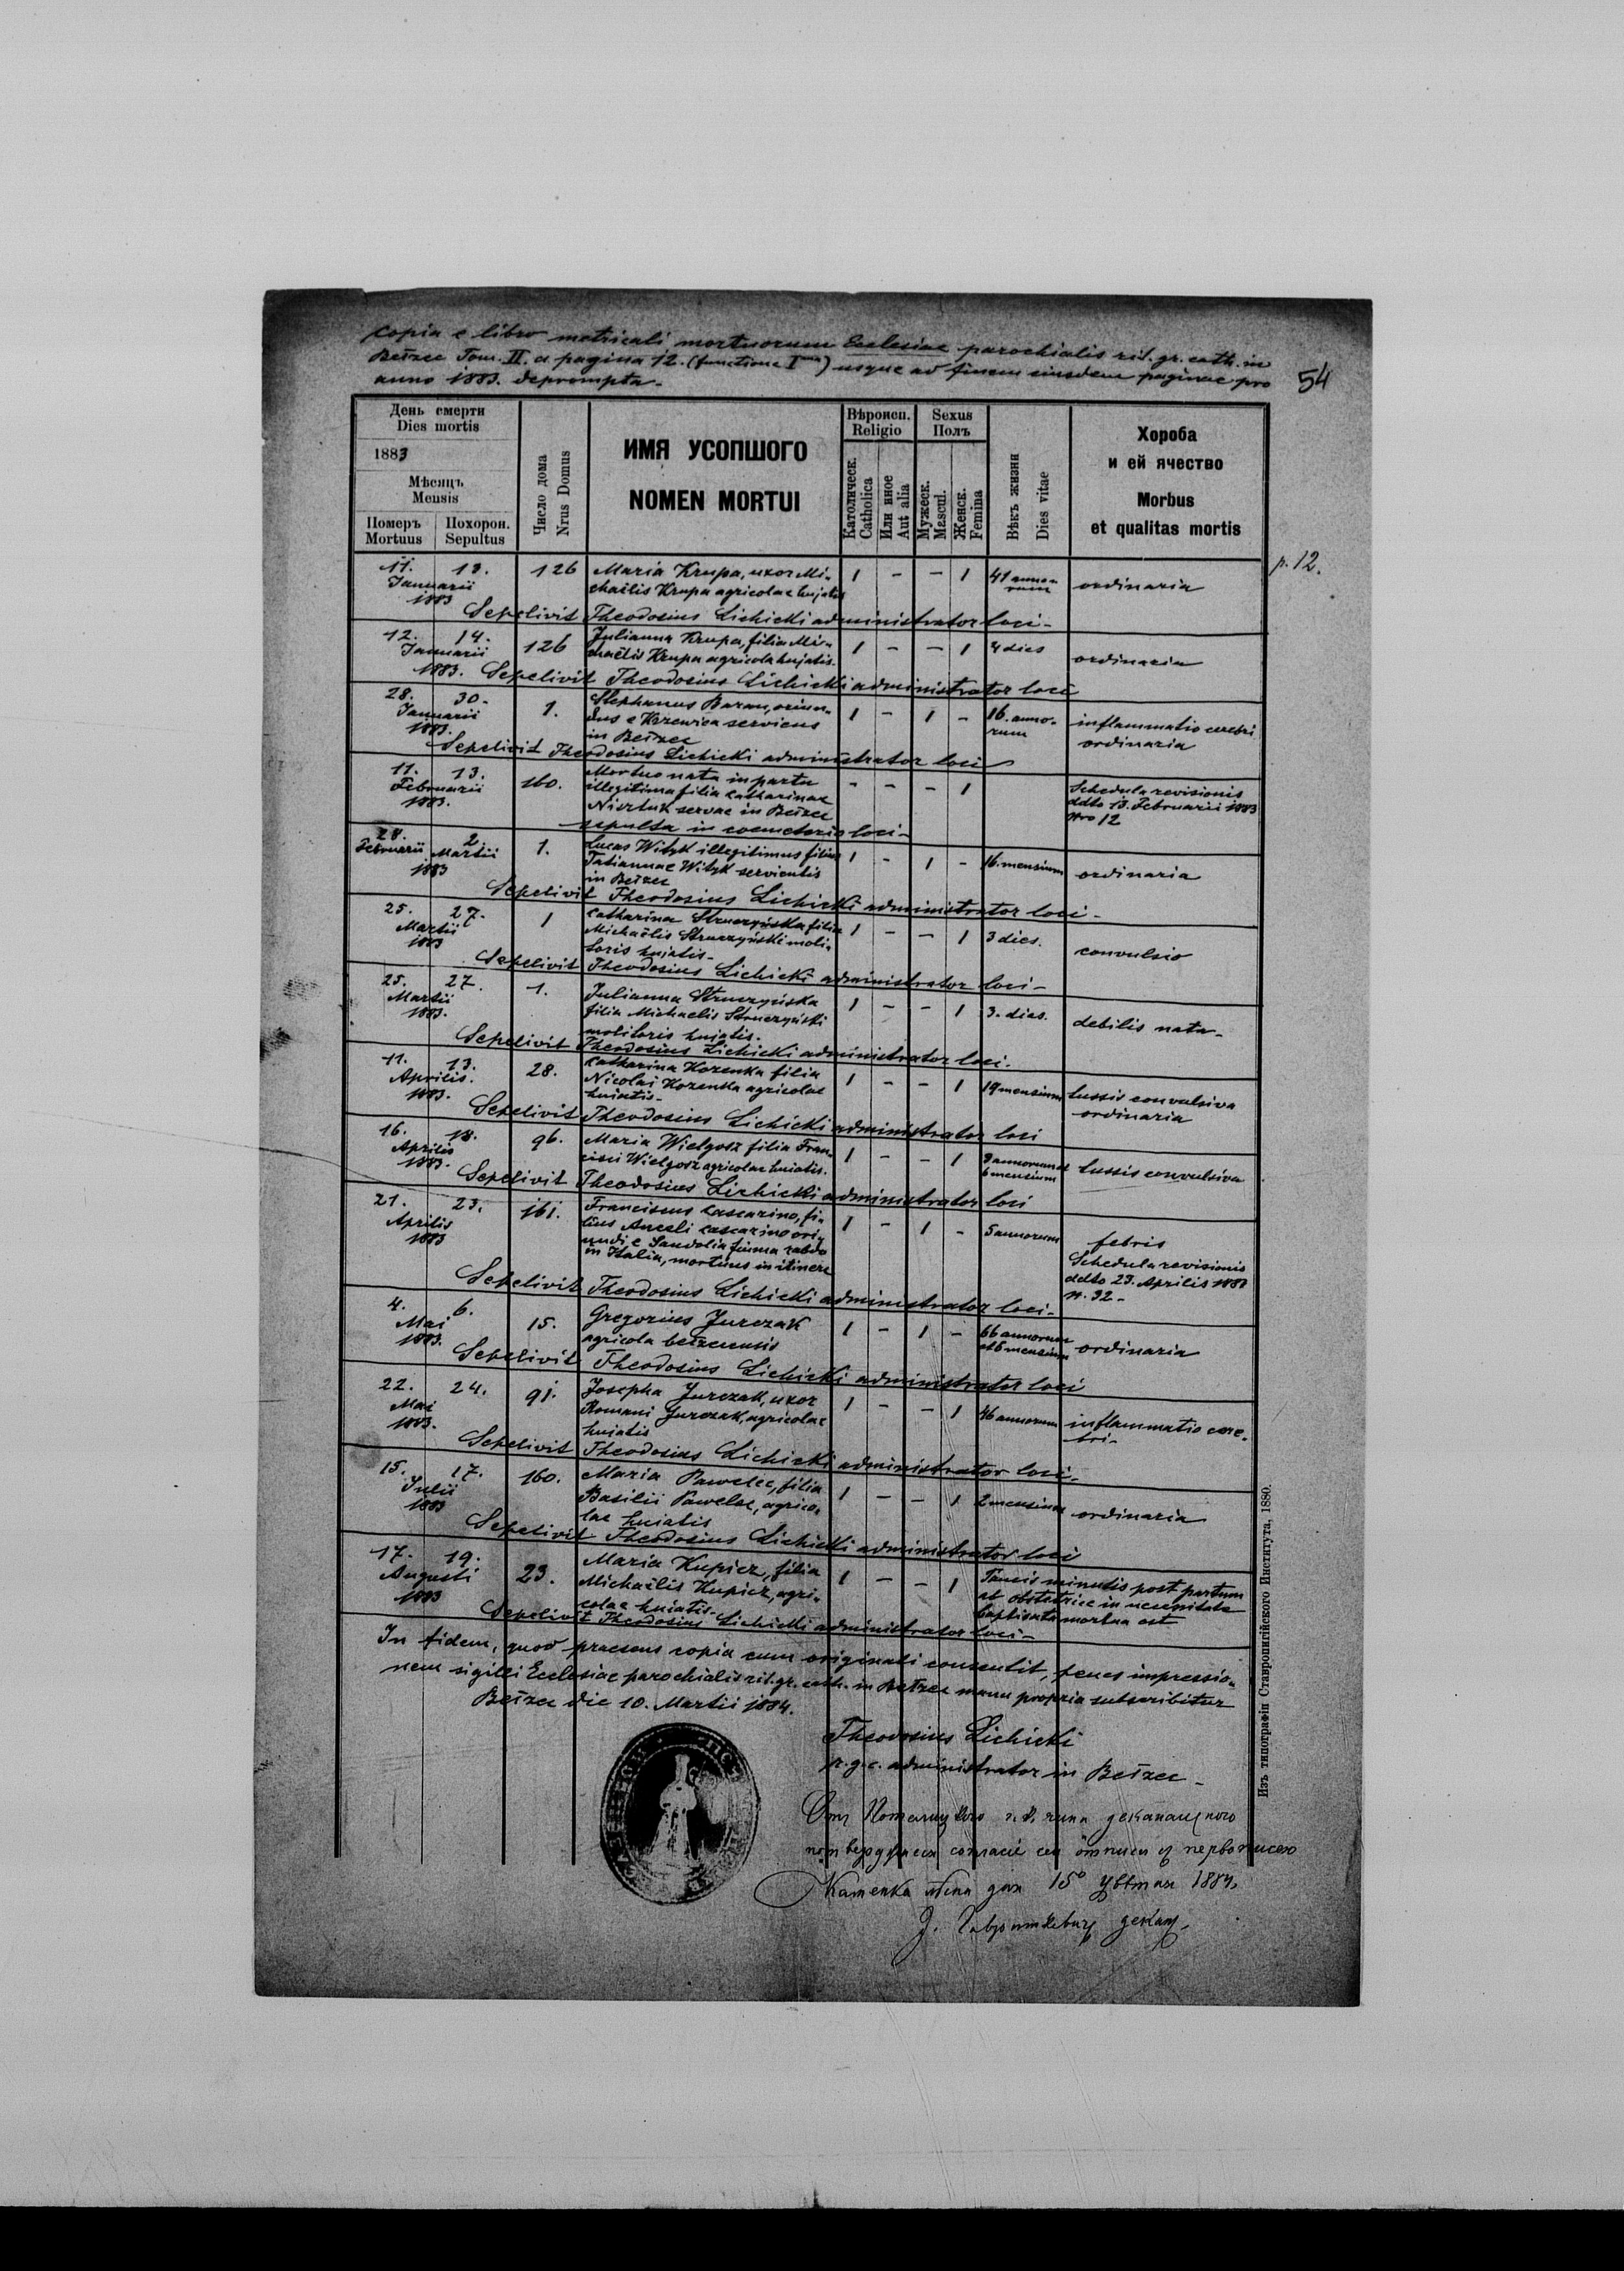 Copia e libro metricali mortuorum Ecclesiae parochialis rit. gr. cath. in
Bełzec Tom. II. a pagina 12. (functione I) usque ad finem eiusdem paginae pro
anno 1883. deprompta.
54
День смерти
Dies mortis
1883
Мѣсяцъ
Mensis
Померъ
Mortuus
Похорон.
Sepultus
Число дома
Nrus Domus
ИМЯ УСОПШОГО
NOMEN MORTUI
Вѣроисп.
Religio
Католическ.
Catholica
Или иное
Aut alia
Sexus
Полъ
Мужеск.
Mascul.
Женск.
Femina
Вѣкъ жизни
Dies vitae
Хороба
и ей ячество
Morbus
et qualitas mortis
p. 12.
11. 13. 126 Maria Krupa, uxor Mi- 1 - - 1 41 anno- ordinaria
Januarii chaëlis Krupa agricolae hujatis rum
1883
Sepelivit Theodosius Lichicki administrator loci-
12. 14. 126 Julianna Krupa, filia Mi- 1 - - 1 4 dies ordinaria
Januarii chaëlis Krupa agricola hujatis.
1883. Sepelivit Theodosius Lichicki administrator loci
28. 30. 1. Stephanus Baran, oriun- 1 - 1 - 16. anno- inflammatio cerebri
Januarii dus e Krzewica serviens rum ordinaria
1883. in Bełzec
Sepelivit Theodosius Lichicki administrator loci
11. 13. 160. Mortuo nata in partu - - - 1 Schedula revisionis
Februarii illegitima filia Catharinae ddto 13. Februarii 1883
1883. servae in Bełzec Nro 12
sepulta in coemeterio loci-
28. 2. 1. Lucas Wityk illegitimus filius 1 - 1 - 16. mensium ordinaria
Februarii Martii Tatiannae Wityk servientis
1883 in Bełzec
Sepelivit Theodosius Lichicki administrator loci-
25. 27. 1 Catharina Struczyńska filia 1 - - 1 3 dies. convulsio
Martii Michaëlis Struczyński moli-
1883 toris hujatis-
Sepelivit Theodosius Lichicki administrator loci-
25. 27. 1. Julianna Struczyńska 1 - - 1 3. dies. debilis nata-
Martii filia Michaelis Struczyński
1883. molitoris hujatis.
Sepelivit Theodosius Lichicki administrator loci.
11. 13. 28. Catharina Kozenka filia 1 - - 1 19 mensium tussis convulsiva
Aprilis. Nicolai Kozenka agricolae ordinaria
1883. hujatis-
Sepelivit Theodosius Lichicki administrator loci
16. 18. 96. Maria Wielgosz filia Fran- 1 - - 1 annorum et tussis convulsiva
Aprilis cisci Wielgosz agricolae hujatis. 6 mensium
1883.
Sepelivit Theodosius Lichicki administrator loci
21. 23. 161. Franciscus Cascarino, fi- 1 - 1 - 5 annorum febris
Aprilis lius Anceli Cascarino ori- Schedula revisionis
1883 undi e ddto 23. Aprilis 1883
in Italia, mortuus in itinere N. 32-
Sepelivit Theodosius Lichicki administrator loci-
4. 6. 15. Gregorius Jurczak 1 - 1 - 66 annorum ordinaria
Mai agricola bełzecensis et 6 mensium
1883.
Sepelivit Theodosius Lichicki administrator loci
22. 24. 91. Josepha Jurczak, uxor 1 - - 1 46 annorum inflammatio cere-
Mai Romani Jurczak, agricolae bri-
1883. hujatis
Sepelivit Theodosius Lichicki administrator loci.
15. 17. 160. Maria Pawelec, filia 1 - - 1 2 mensium ordinaria
Julii Basilii Pawelec, agrico-
1883 lae hujatis
Sepelivit Theodosius Lichicki administrator loci
17. 19. 23. Maria Kupicz, filia 1 - - 1 Paucis minutis post partum
Augusti Michaëlis Kupicz, agri- ab obstetrice in necessitate
1883 colae hujatis- baptisata mortua est
Sepelivit Theodosius Lichicki administrator loci-
In fidem, quod praesens copia cum originali consentit, penes impressio-
nem sigilli Ecclesiae parochialis rit. gr. cath. in Bełzec manu propria subscribitur
Bełzec die 10. Martii 1884.
Theodosius Lichicki
r.g.c. administrator in Bełzec-
1884
Изъ типографіи Ставропигійского Института, 1880.